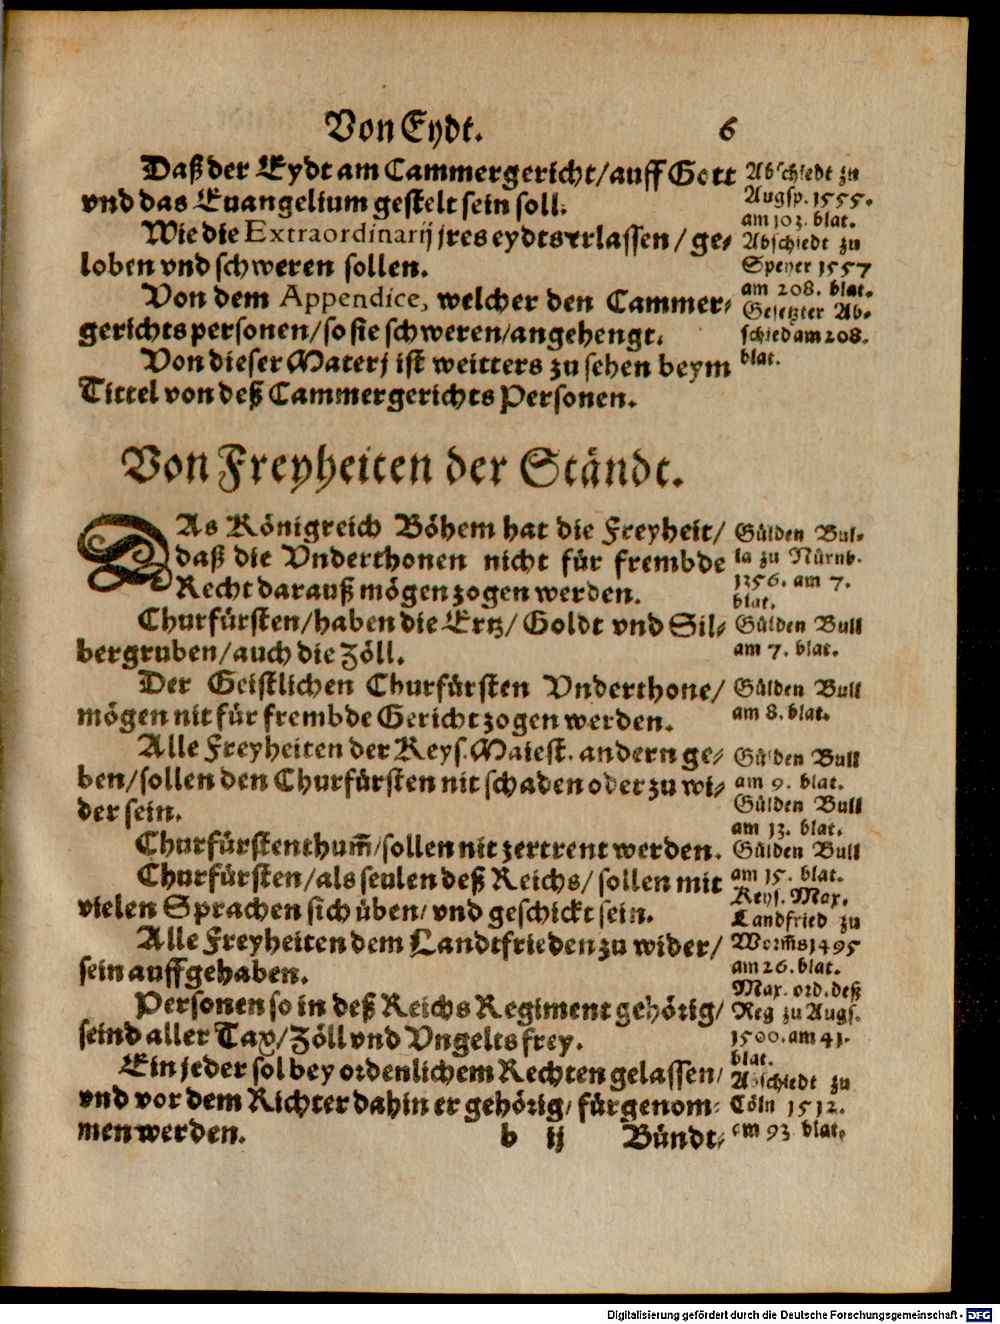 Von Eydt. 6
Daß der Eydt am Cammergericht/auff Gott
vnd das Euangelium gestelt sein soll.
Wie die Extraordinarij jres eydts erlassen/ ge-
loben vnd schweren sollen.
Von dem Appendice, welcher den Cammer-
gerichts personen/so sie schweren/angehengt.
Von dieser Raterj ist weitters zu sehen beym
Tittel von deß Cammergerichts Personen.
Abschiedt zu
Augsp. 1555.
am 103. blat.
Abschiedt zu
Speyer 1557
am 208. blat.
Gesetzter Ab-
schied am 208.
blat.
Von Freyheiten der Ständt.
DAs Königreich Böhem hat die Freyheit/
daß die Vnderthonen nicht für frembde
Recht darauß mögen zogen werden.
Churfürsten/haben die Ertz/ Goldt vnd Sil-
bergruben/auch die Zöll.
Der Geistlichen Churfürsten Vnderthone/
mögen nit für frembde Gericht zogen werden.
Alle Freyheiten der Keys. Maiest. andern ge-
ben/sollen den Churfürsten nit schaden oder zu wi-
der sein.
Churfürstenthum̃/sollen nit zertrent werden.
Churfürsten/als seulen deß Reichs/ sollen mit
vielen Sprachen sich üben/ vnd geschickt sein.
Alle Freyheiten dem Landtfrieden zu wider/
sein auffgehaben.
Personen so in deß Reichs Regiment gehörig/
seind aller Tax/Zöll vnd Vngelts frey.
Ein jeder sol bey ordenlichem Rechten gelassen/
vnd vor dem Richter dahin er gehörig/ fürgenom-
men werden.
Gülden Bul-
la zu Nürnb.
1356. am 7.
blat.
Gülden Bull
am 7. blat.
Gülden Bull
am 8. blat.
Gülden Bull
am 9. blat.
Gülden Bull
am 13. blat.
Gülden Bull
am 15. blat.
Keys. Max.
Landfried zu
Worm̃s 1495
am 26. blat.
Max. ord. deß
Reg zu Augs.
1500. am 41.
blat.
Abschiedt zu
Cöln 1512.
am 93 blat.
b ij Bündt-
Digitalisierung gefördert durch die Deutsche Forschungsgemeinschaft - DFG